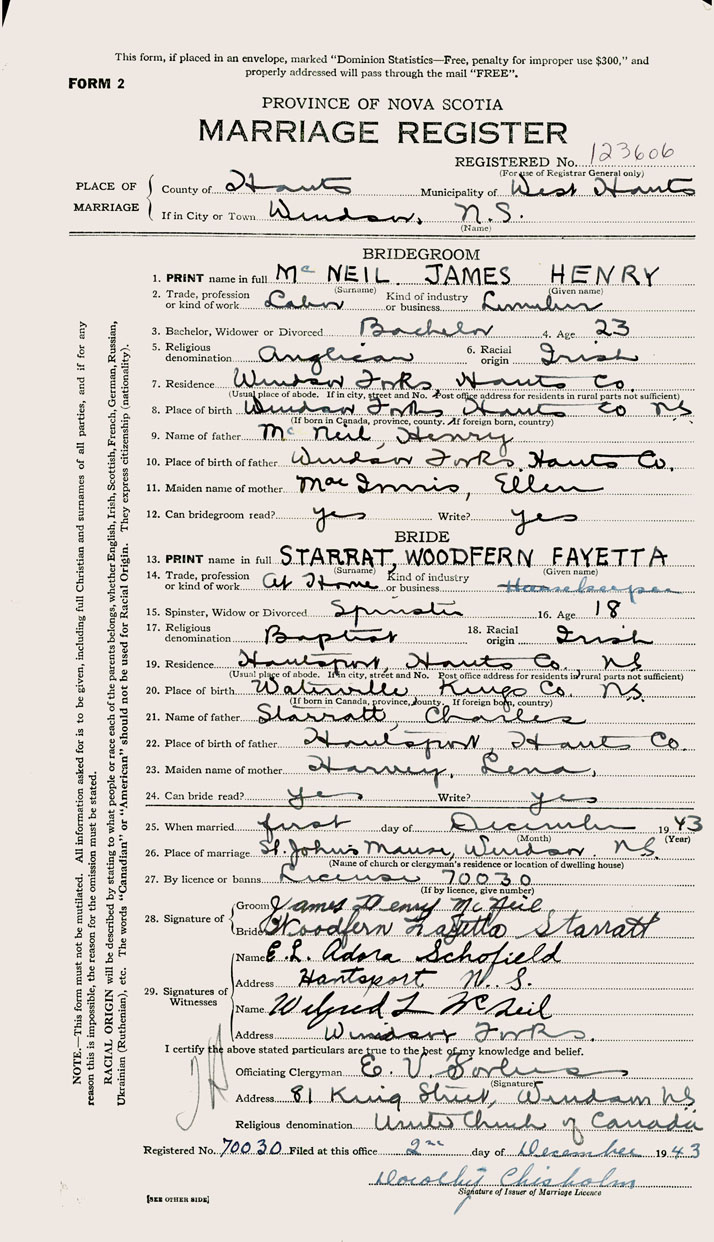 This form, if placed in an envelope, marked "Dominion Statistics—Free, penalty for improper use $300," and
properly addressed will pass through the mail "FREE".
FORM 2
PROVINCE OF NOVA SCOTIA
MARRIAGE REGISTER
REGISTERED No. 123606
(For use of Registrar General only)
PLACE OF MARRIAGE
County of Hants Municipality of West Hants
If in City or Town Windsor, N.S.
(Name)
BRIDEGROOM
1. PRINT name in full Mc NEIL JAMES HENRY
(Surname) (Given name)
2. Trade, profession or kind of work Labor Kind of industry or business Lumber
3. Bachelor, Widower or Divorced Bachelor 4. Age 23
5. Religious denomination Anglican 6. Racial origin Irish
7. Residence Windsor Forks, Hants Co.
(Usual place of abode. If in city, street and No. Post office address for residents in rural parts not sufficient)
8. Place of birth Windsor Forks Hants Co NS
(If born in Canada, province, county. If foreign born, country)
9. Name of father Mc Neil, Henry
10. Place of birth of father Windsor Forks, Hants Co.
11. Maiden name of mother Mac Innis, Ellen
12. Can bridegroom read? yes Write? yes
BRIDE
13. PRINT name in full STARRAT, WOODFERN FAYETTA
(Surname) (Given name)
14. Trade, profession or kind of work At Home Kind of industry or business Housekeeper
15. Spinster, Widow or Divorced Spinster 16. Age 18
17. Religious denomination Baptist 18. Racial origin Irish
19. Residence Hantsport, Hants Co., NS
(Usual place of abode. If in city, street and No. Post office address for residents in rural parts not sufficient)
20. Place of birth Waterville Kings Co. N.S.
(If born in Canada, province, county. If foreign born, country)
21. Name of father Starratt, Charles
22. Place of birth of father Hantsport, Hants Co.
23. Maiden name of mother Harvey, Lena,
24. Can bride read? yes Write? yes
25. When married first day of December 1943
(Month) (Year)
26. Place of marriage St. John's Manse, Windsor, NS.
(Name of church or clergyman's residence or location of dwelling house)
27. By licence or banns License 70030
(If by licence, give number)
28. Signature of
Groom James Henry McNeil
Bride Woodfern Fayetta Starratt
29. Signatures of Witnesses
Name E.L. Adora Schofield
Address Hantsport N.S.
Name Wilfred L McNeil
Address Windsor Forks.
I certify the above stated particulars are true to the best of my knowledge and belief.
Officiating Clergyman E. V. Forbes
(Signature)
Address 81 King Street, Windsor NS
Religious denomination United Church of Canada
Registered No. 70030 Filed at this office 2nd day of December 1943
Dorothy Chisholm
Signature of Issuer of Marriage Licence
[SEE OTHER SIDE]
NOTE.—This form must not be mutilated. All information asked for is to be given, including full Christian and surnames of all parties, and if for any
reason this is impossible, the reason for the omission must be stated.
RACIAL ORIGIN will be described by stating to what people or race each of the parents belongs, whether English, Irish, Scottish, French, German, Russian,
Ukrainian (Ruthenian), etc. The words "Canadian" or "American" should not be used for Racial Origin. They express citizenship (nationality).